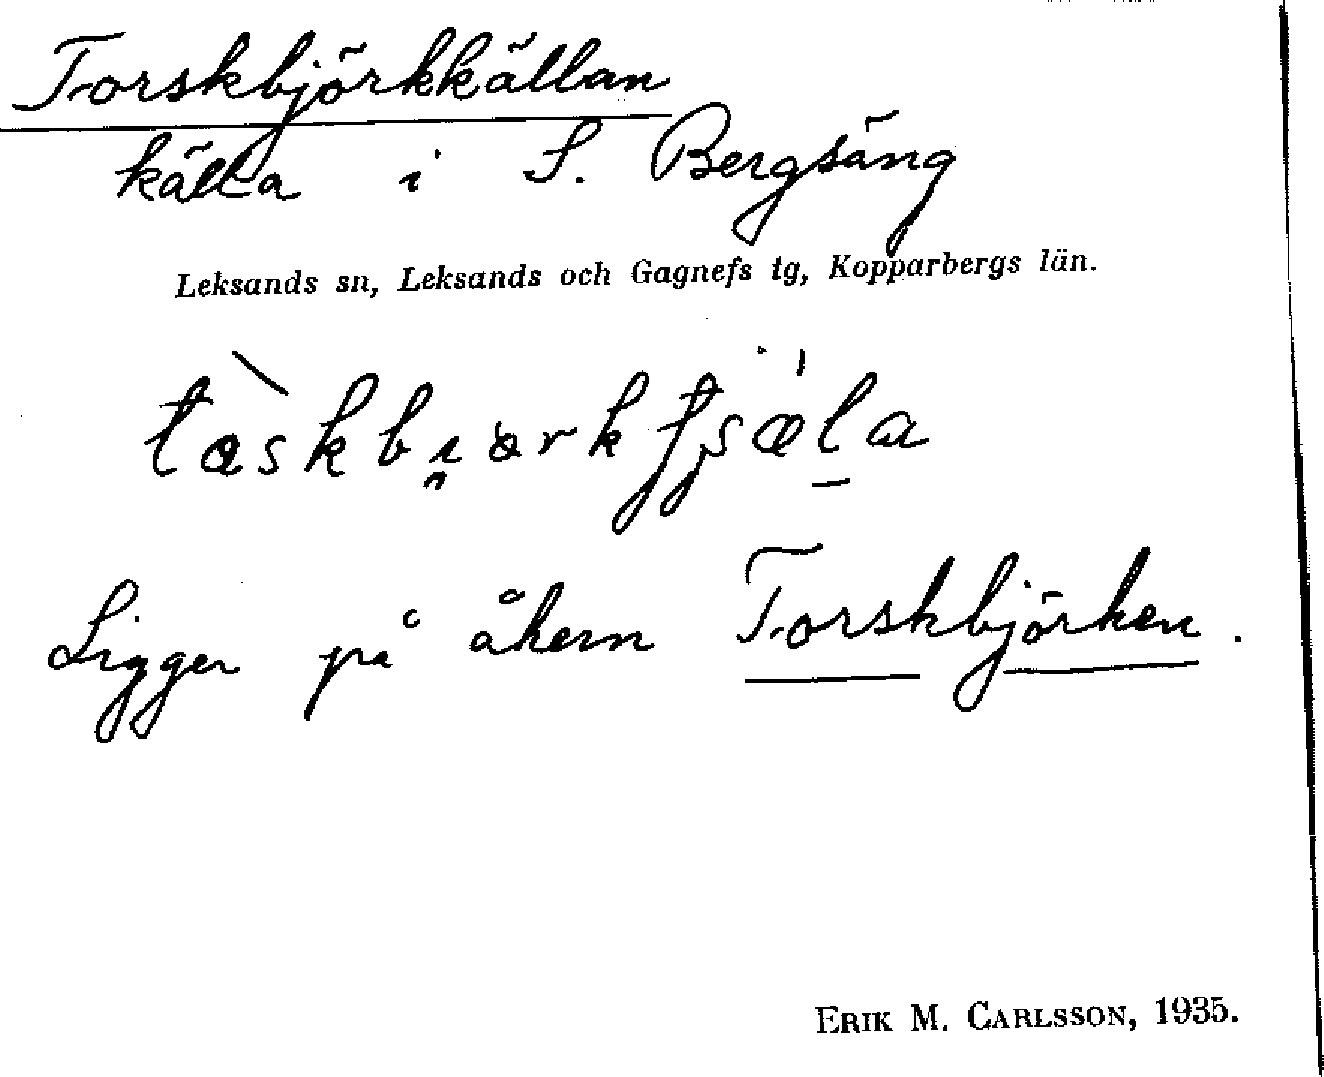 Torskbjörkkällan
källa i S. Bergsäng
Leksands sn, Leksands och Gagnefs tg, Kopparbergs län.
Ligger på åkern Torskbjörken.
ERIK M. CARLSSON, 1935.